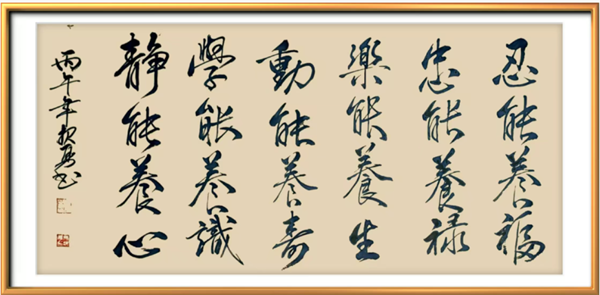 忍能養福
忠能養禄
樂能養生
動能養壽
學能養識
静能養心
丙午年